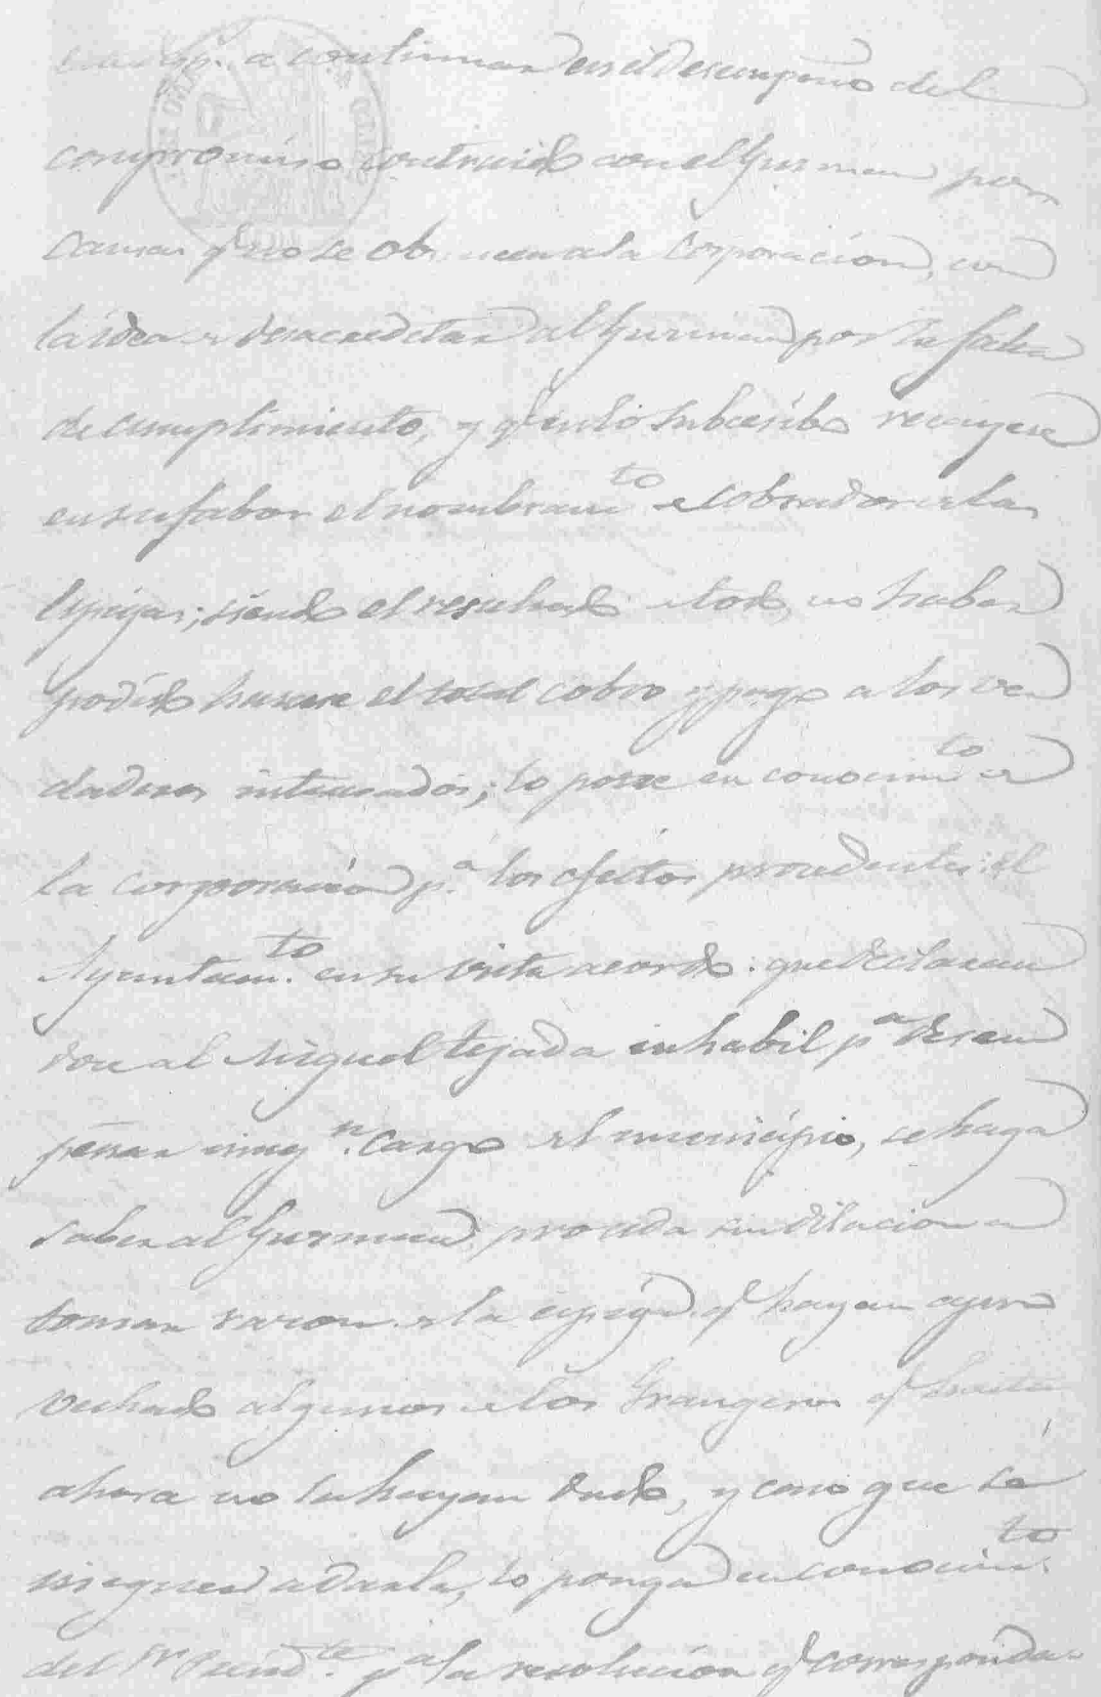 a continuar en el desempeño del
compromiso contraido con el Guzman por
causas q.e no se obscurecen a la corporación, con
la idea de desacreditar al Guzman por la falta
de cumplimiento, y q.e en lo subcesibo recayese
en su fabor el nombram.to de cobrador de las
espigas; siendo el resultado de todo, no haber
podido hacerse el total cobro y pago a los ver
daderos interesados; lo pone en conocim.to de
la corporación p.a los efectos procedentes: el
Ayuntam.to en su vista acordó: que declaran
dose al Miguel Tejada inhabil p.a desem
peñar ning.n cargo del municipio, se haga
saber al Guzman proceda sin dilacion a
tomar razon de la espiga q.e hayan apro
vechado algunos de los Grangeros q.e hasta
ahora no la hayan dado, y caso que se
nieguen a darla, lo ponga en conocim.to
del Sr. Presid.te p.a la resolución q.e corresponda